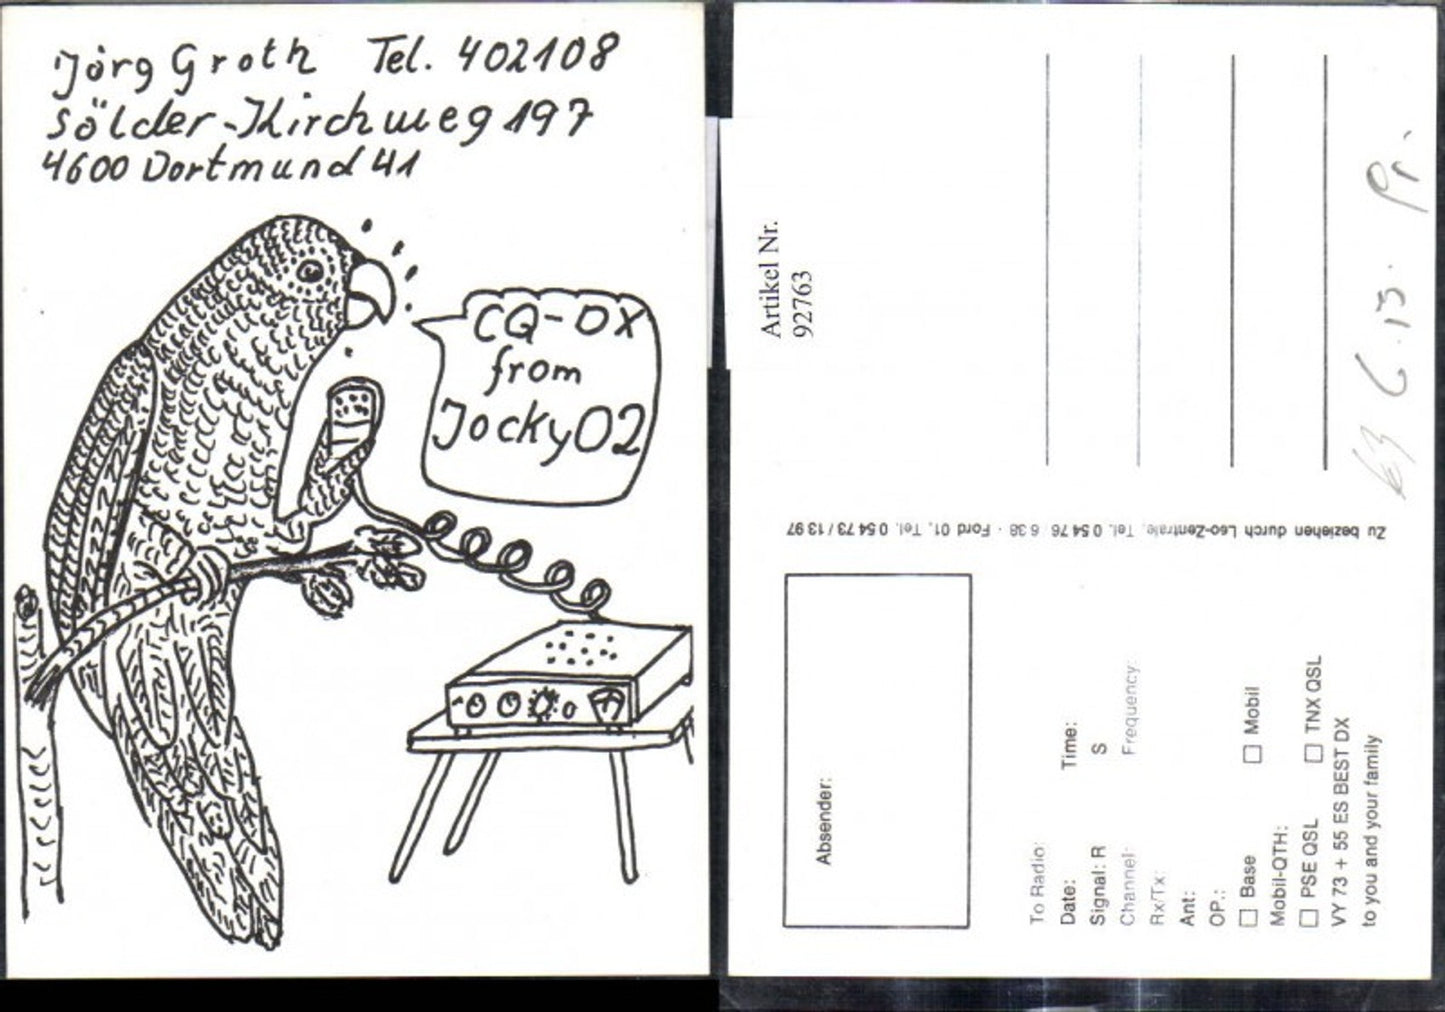 Jörg Groth Tel. 402108
Sölder-Kirchweg 197
4600 Dortmund 41
CQ-DX
from
Jocky02
Artikel Nr.
92763
Zu beziehen durch Leo-Zentrale, Tel. 0 54 76 / 6 38 · Ford 01, Tel. 0 54 73 / 13 97
Absender:
To Radio:
Date: Time:
Signal: R S
Channel: Frequency:
Rx/Tx:
Ant:
OP.:
□ Base □ Mobil
Mobil-QTH:
□ PSE QSL □ TNX QSL
VY 73 + 55 ES BEST DX
to you and your family